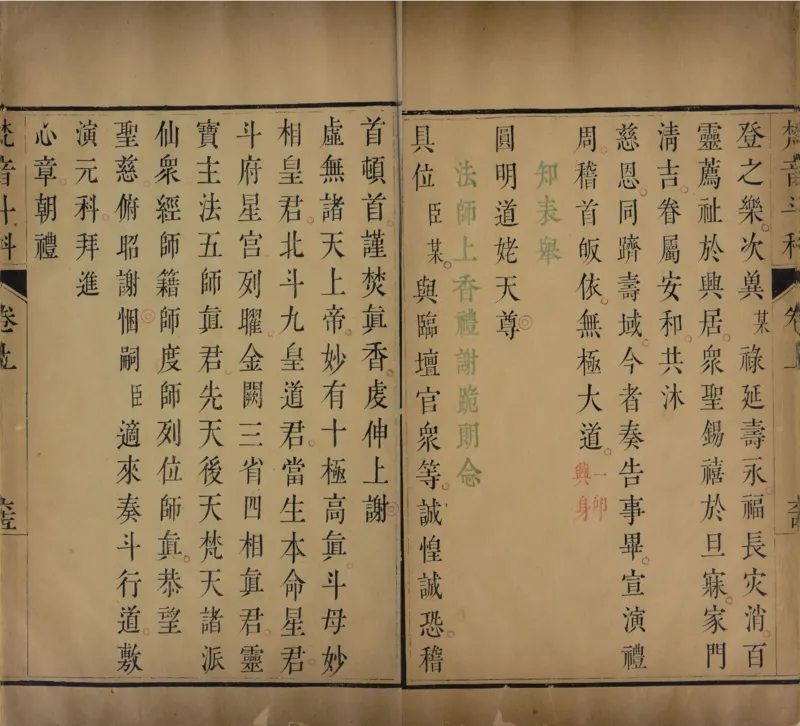 梵音斗科
登之樂。次冀某祿延壽永。福長灾消。百
靈薦祉於興居。衆聖錫禧於旦寐。家門
淸吉。眷屬安和。共沐
慈恩。同躋壽域。今者奏告事畢。宣演禮
周。稽首皈依。無極大道。一卽興身
知表舉
圓明道姥天尊◎
法師上香禮謝跪開念
具位臣某。與臨壇官衆等。誠惶誠恐。稽
首頓首。謹焚眞香。虔伸上謝◎
虛無諸天上帝。妙有十極高眞。斗母妙
相皇君。北斗九皇道君。當生本命星君。
斗府星宮列曜。金闕三省四相眞君。靈
寶主法五師眞君。先天後天梵天諸派
仙衆。經師籍師度師列位師眞。恭望
聖慈。俯昭謝悃◎嗣臣適來奏斗行道。敷
演元科。拜進
心章。朝禮
梵音斗科